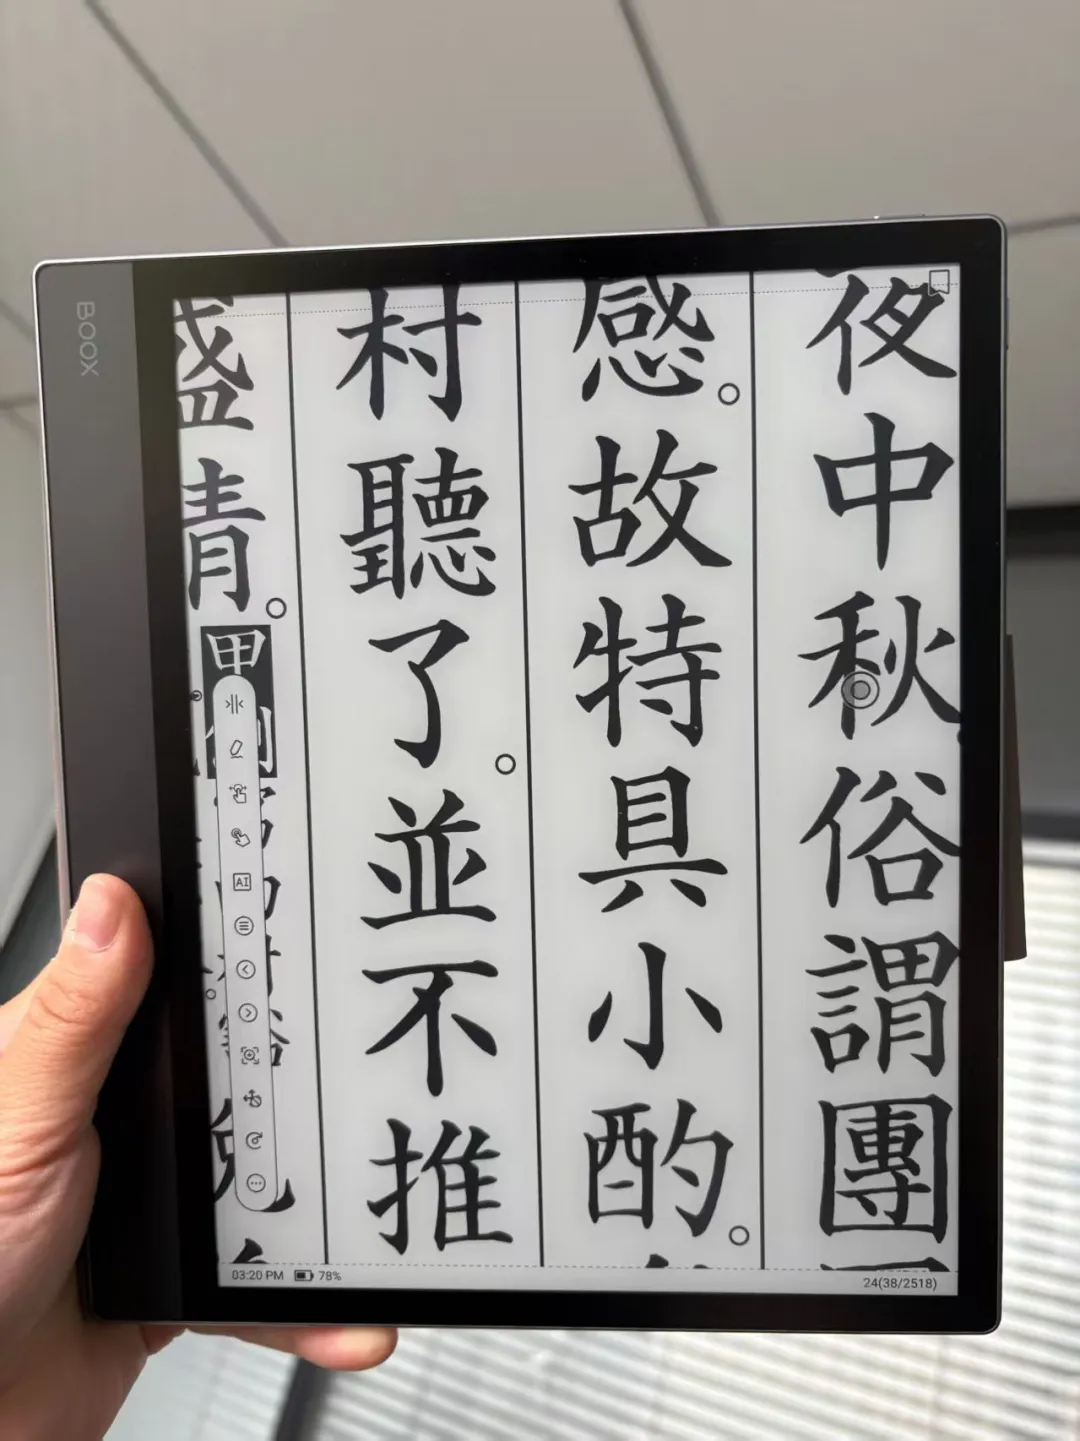 BOOX
夜中秋俗謂團
感。故特具小酌。
村聽了。並不推
盞青。
甲
兔
03:20 PM 78%
24(38/2518)
AI